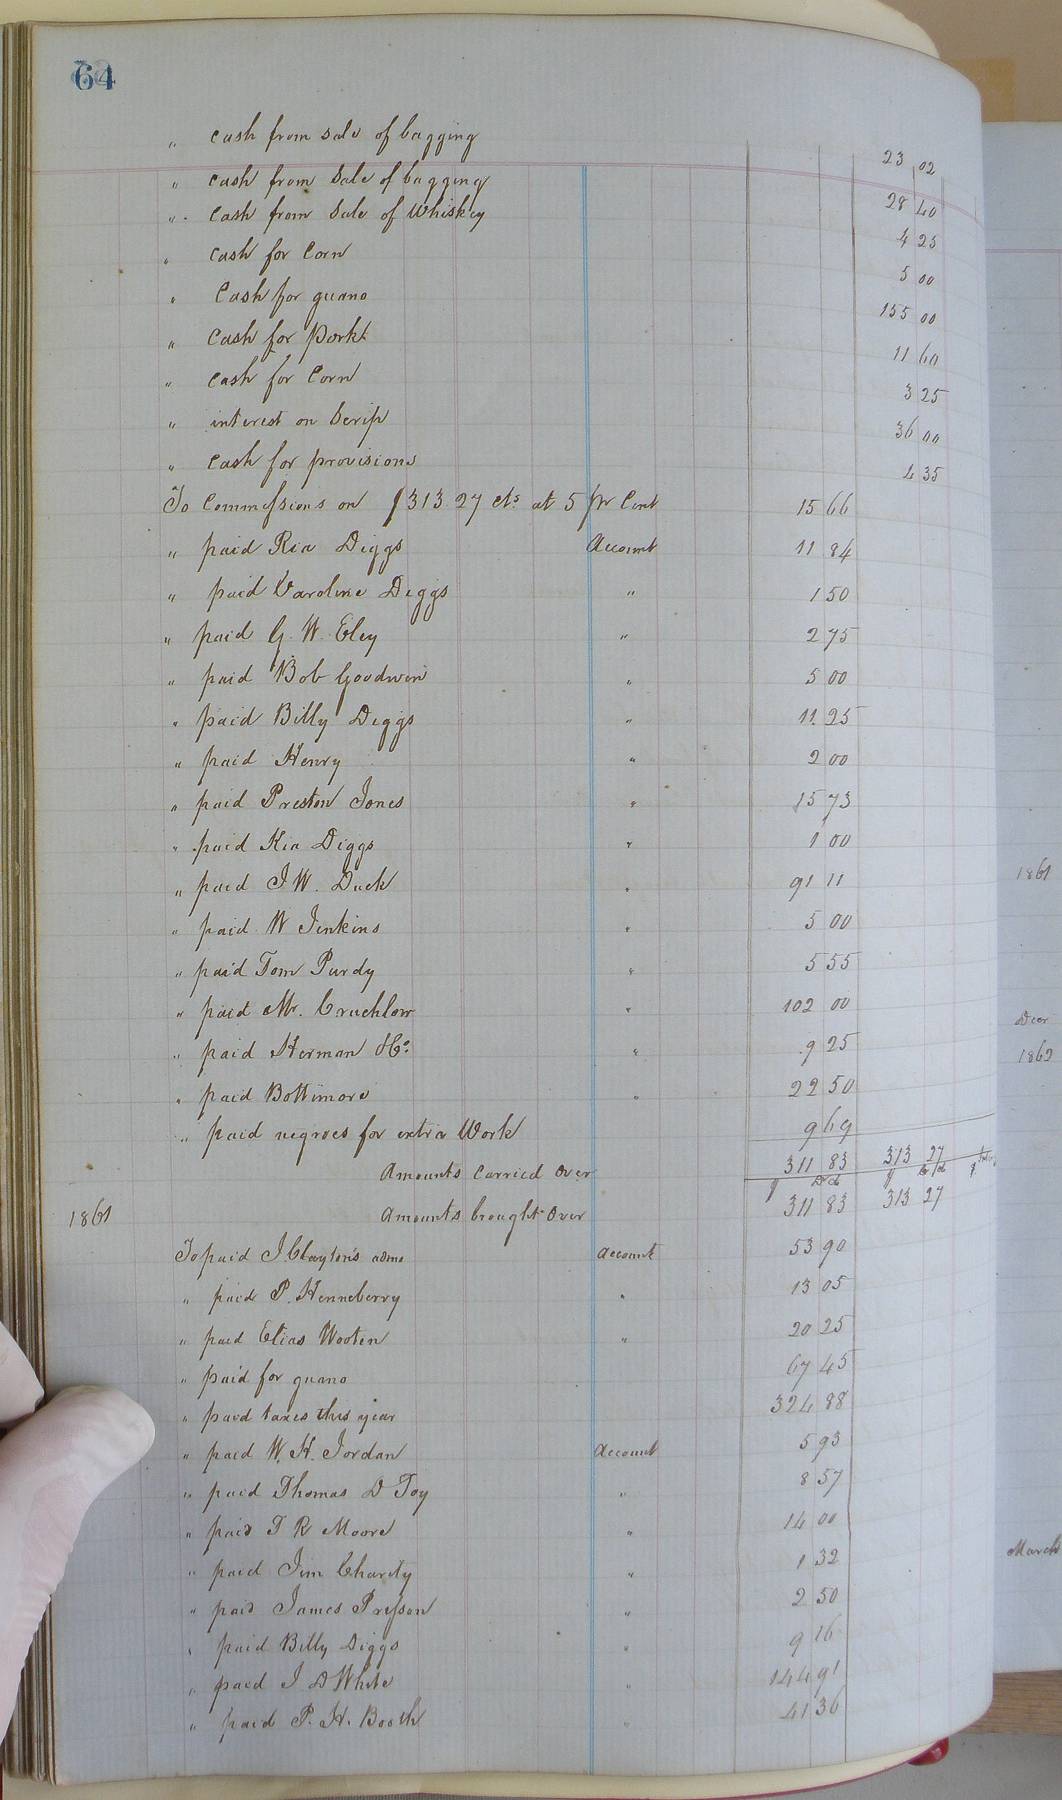 64
" Cash from sale of bagging 23 02
" Cash from Sale of bagging 28 40
" Cash from Sale of Whiskey 4 25
" Cash for Corn 5 00
" Cash for guano 155 00
" Cash for Pork 11 60
" Cash for Corn 3 25
" interest on Scrip 36 00
" Cash for provisions 4 35
To Commissions on $313.27 cts at 5 pr Cent 15 66
" paid Ria Diggs Account 11 84
" paid Caroline Diggs " 1 50
" paid G. W. Eley " 2 75
" paid Bob Goodwin " 5 00
" paid Billy Diggs " 11 25
" paid Henry " 2 00
" paid Preston Jones " 15 73
" paid Kia Diggs " 1 00
" paid J. W. Duck " 91 11
" paid W Jenkins " 5 00
" paid Tom Purdy " 5 55
" paid Mr. Cruchlow " 102 00
" paid Herman & Co. " 9 25
" paid Bottimore " 22 50
" paid negroes for extra Work 9 69
Amounts Carried Over 311 83 313 27
1861 Amounts brought Over 311 83 313 27
To paid J. Clayton's admo account 53 90
" paid P. Henneberry " 13 05
" paid Elias Wooten " 20 25
" paid for guano 67 45
" paid taxes this year 324 88
" paid W. H. Jordan Account 5 93
" paid Thomas D Toy " 8 57
" paid T R Moore " 14 00
" paid Jim Charity " 1 32
" paid James Presson " 2 50
" paid Billy Diggs " 9 16
" paid J D White " 144 91
" paid P. H. Booth " 41 36
1861
Decr
1862
March